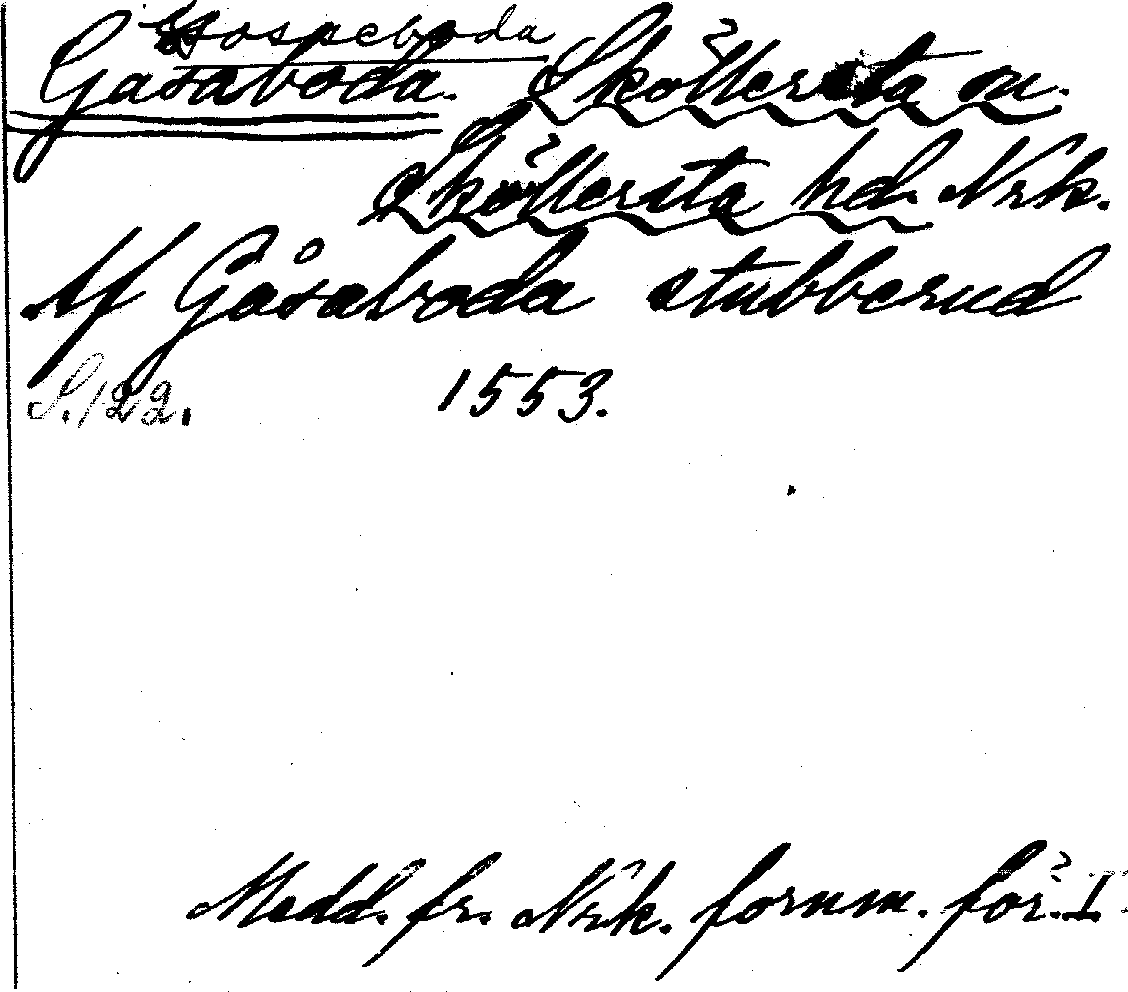 Hospeboda
Gasaboda. Sköllersta sn.
Sköllersta hd. Nrk.
Af Gåsaboda stubberud
S. 122. 1553.
Medd. fr. Nrk. fornm. för. I.